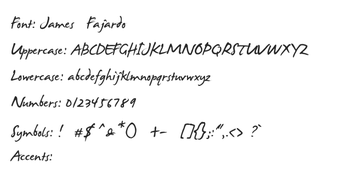 Font: James Fajardo
Uppercase: ABCDEFGHIJKLMNOPQRSTUVWXYZ
Lowercase: abcdefghijklmnopqrstuvwxyz
Numbers: 0123456789
Symbols: ! #$^&*() +- []{};:'",.<> ?`
Accents: